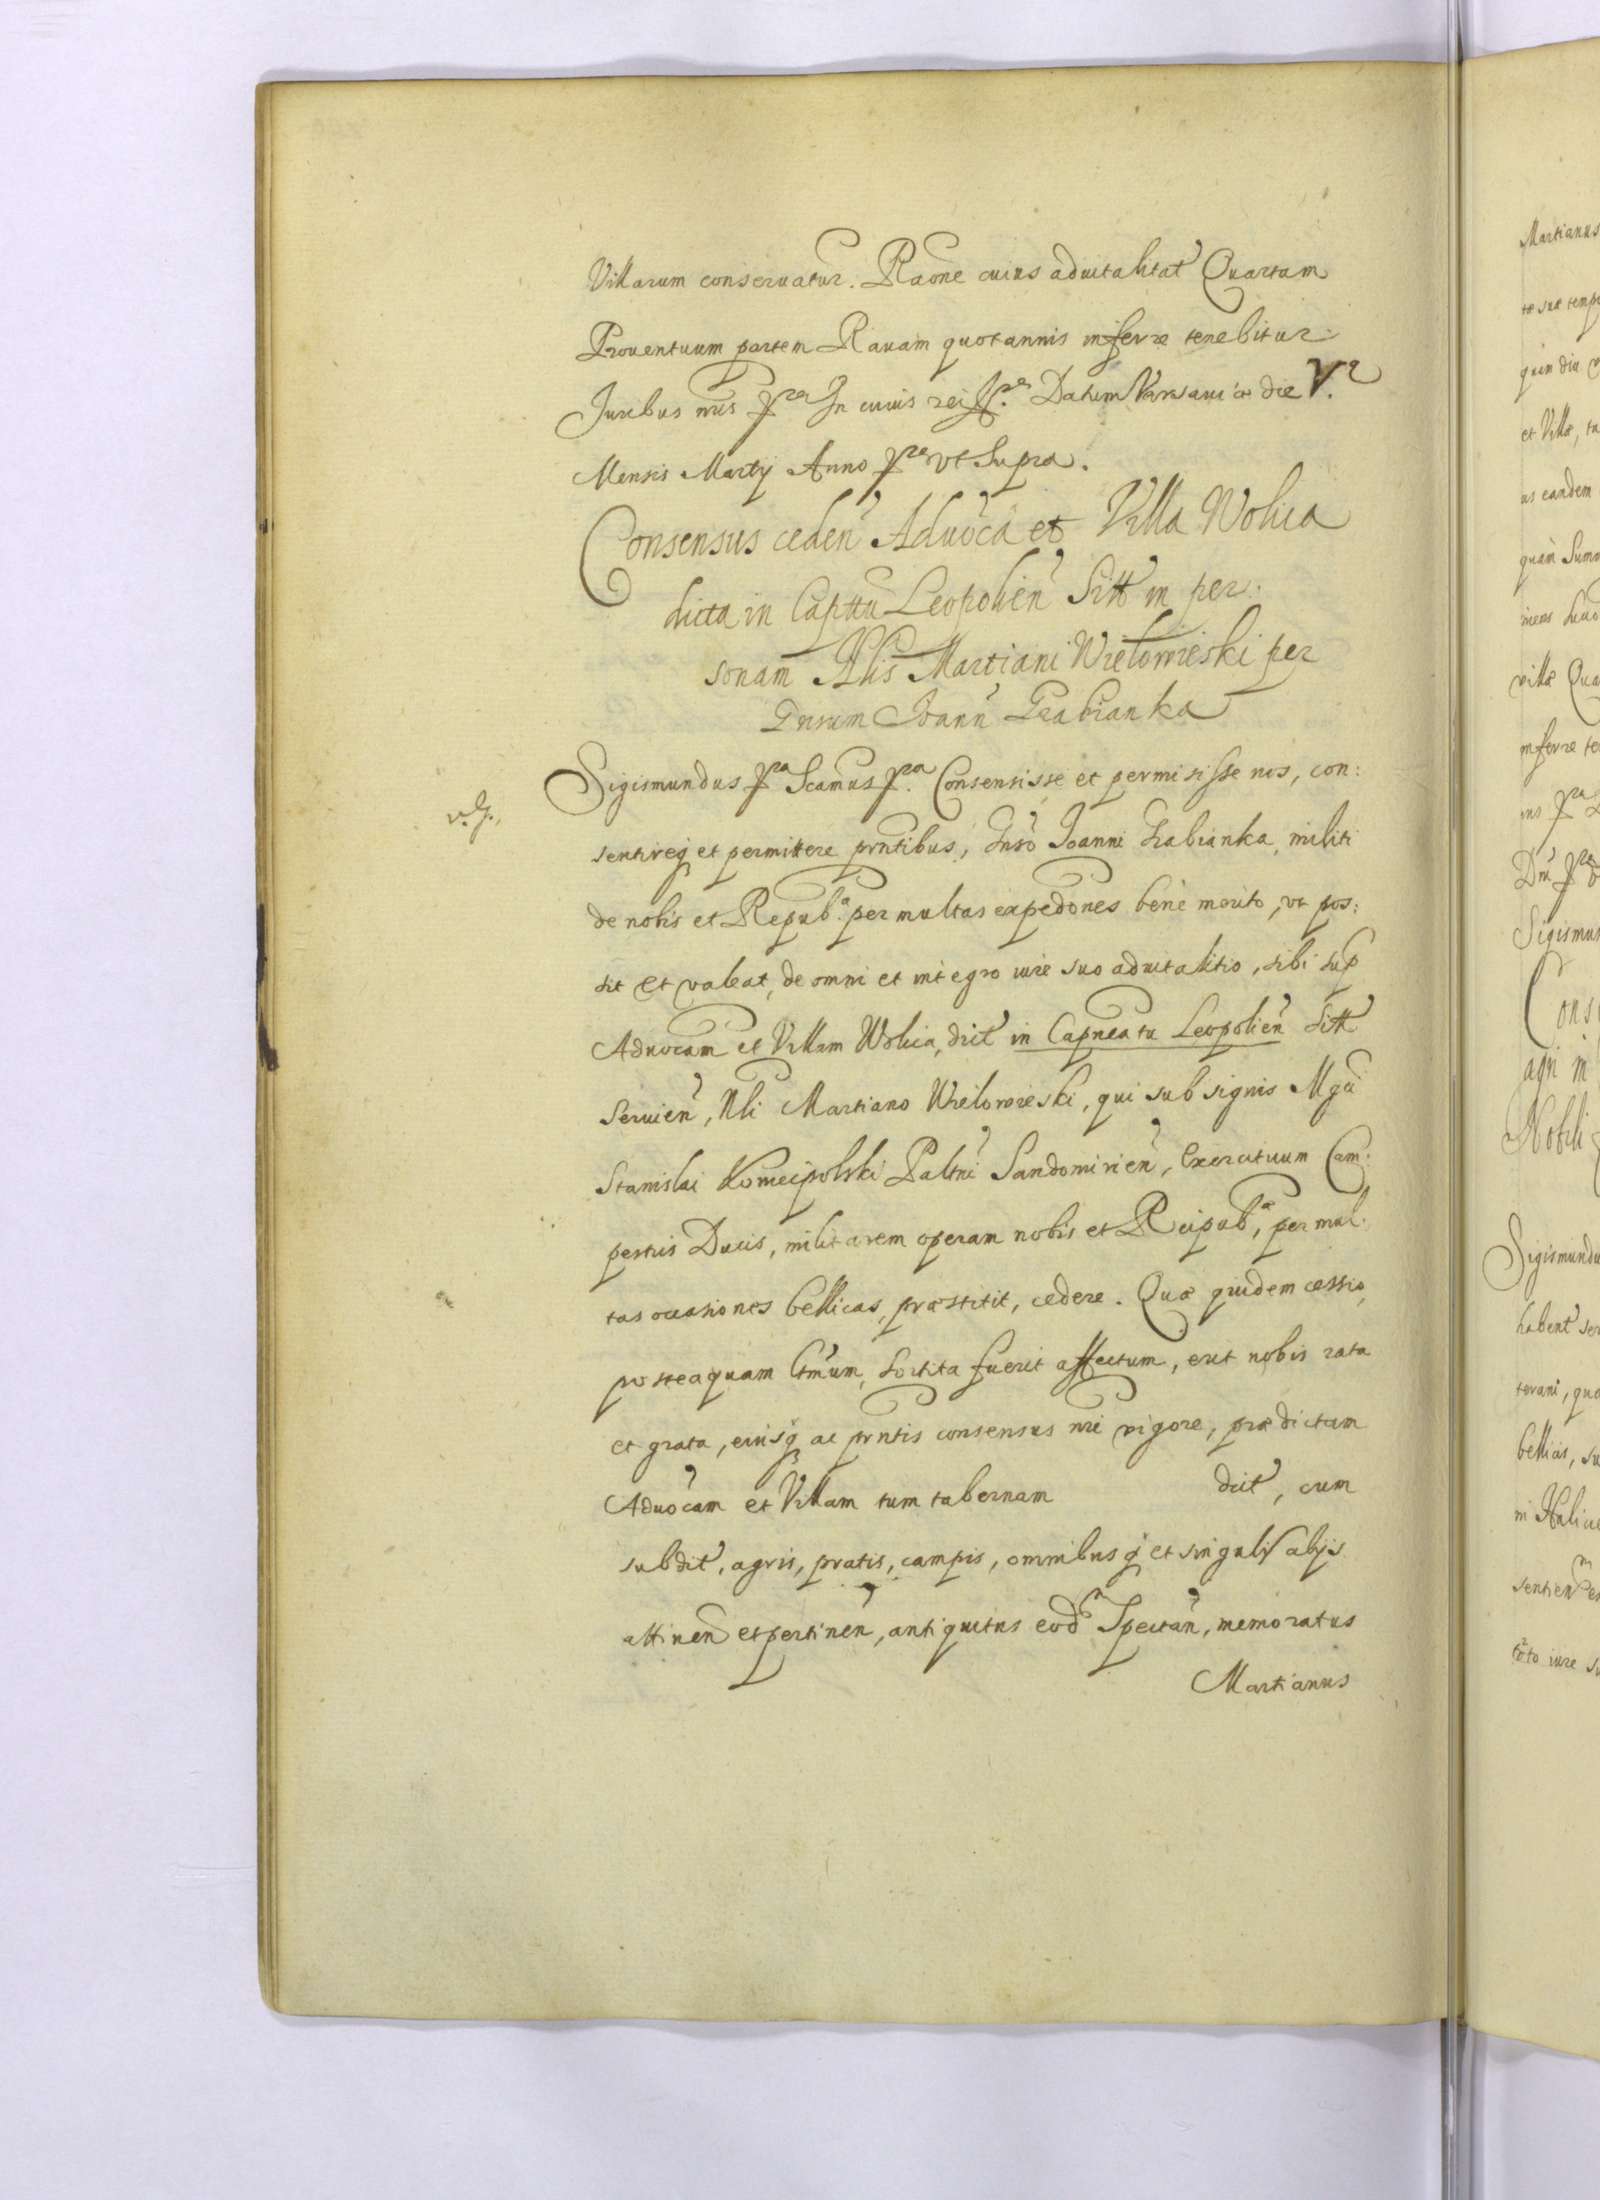 Villarum conseruatur. Raone cuius aduitalitat Quartam
Prouentuum partem Rauam quotannis inferre tenebitur
Juribus nris pra In cuius rei Datum Varsauiæ die V.a
Mensis Martij Anno pra vt Supra.
Consensus ceden Aduoca et Villa Wolica
dicta in Capttu Leopolien Sitt in per:
sonam Nlis Martiani Wielowieski per
Gnsum Joann Grabianka
Sigismundus pra Scamus pra. Consensisse et permisisse nos, con:
sentireq et permittere prntibus, Gnso Joanni Grabianka, militi
de nobis et Repub.a per multas expedones bene merito, vt pos:
sit et valeat, de omni et integro iure suo aduitalitio, sibi sup
Aduocam et Villam Wolica, dict in Capneatu Leopolien Sitt
Seruien, Nli Martiano Wielowieski, qui sub signis Mgci
Stanislai Koniecpolski Paltni Sandomirien, Exercituum Cam:
pestris Ducis, militarem operam nobis et Reipub.æ, per mul:
tas occasiones bellicas, præstitit, cedere. Quæ quidem cessio,
posteaquam sortita fuerit affectum, erit nobis rata
et grata, eiusq ac prntis consensus nri vigore, prædictam
Aduocam et Villam tum tabernam dict, cum
subdit, agris, pratis, campis, omnibus q et singulis alijs
attinen et pertinen, antiquitus eod Spectan, memoratus
Martianus
Martianus
tæ suæ temp
quin diu
et Villæ, tu
us eandem
quam Summ
villæ Qua
inferre te
Sigismun
Cons
agri in
Nobili
Sigismundu
habent ser
terani, quo
bellicis, su
in Halicie
iure su